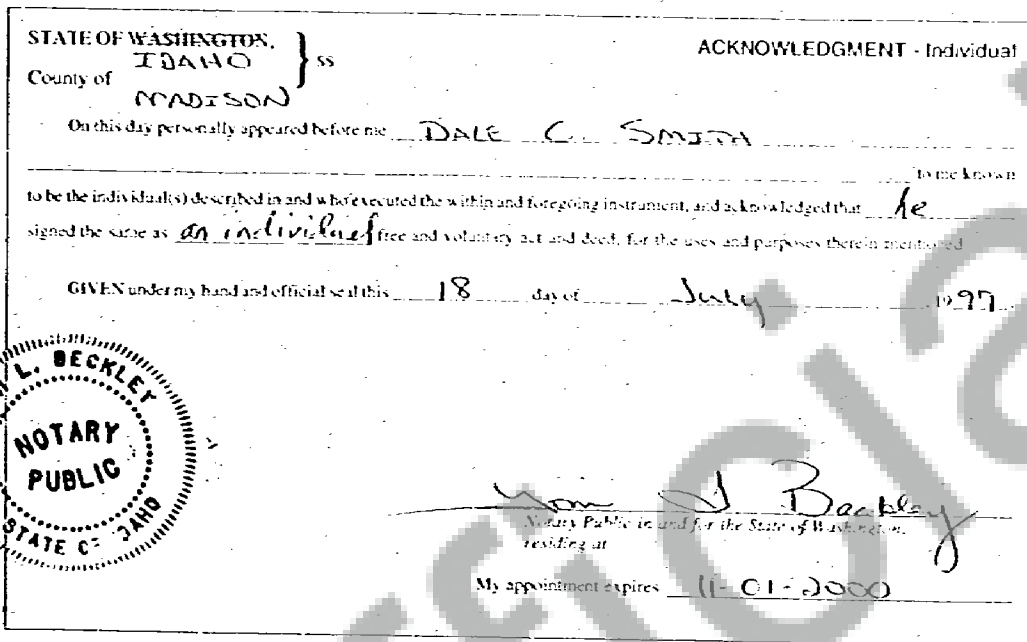 STATE OF WASHINGTON, } ss
ACKNOWLEDGMENT - Individual
IDAHO
County of
MADISON
On this day personally appeared before me DALE C. SMITH
to me known
to be the individual(s) described in and who executed the within and foregoing instrument, and acknowledged that he
signed the same as an individual free and voluntary act and deed, for the uses and purposes therein mentioned
GIVEN under my hand and official seal this 18 day of July 1997
L. BECKLEY
NOTARY
PUBLIC
STATE OF IDAHO
Beckley
Notary Public in and for the State of Washington,
residing at
My appointment expires 11-01-2000